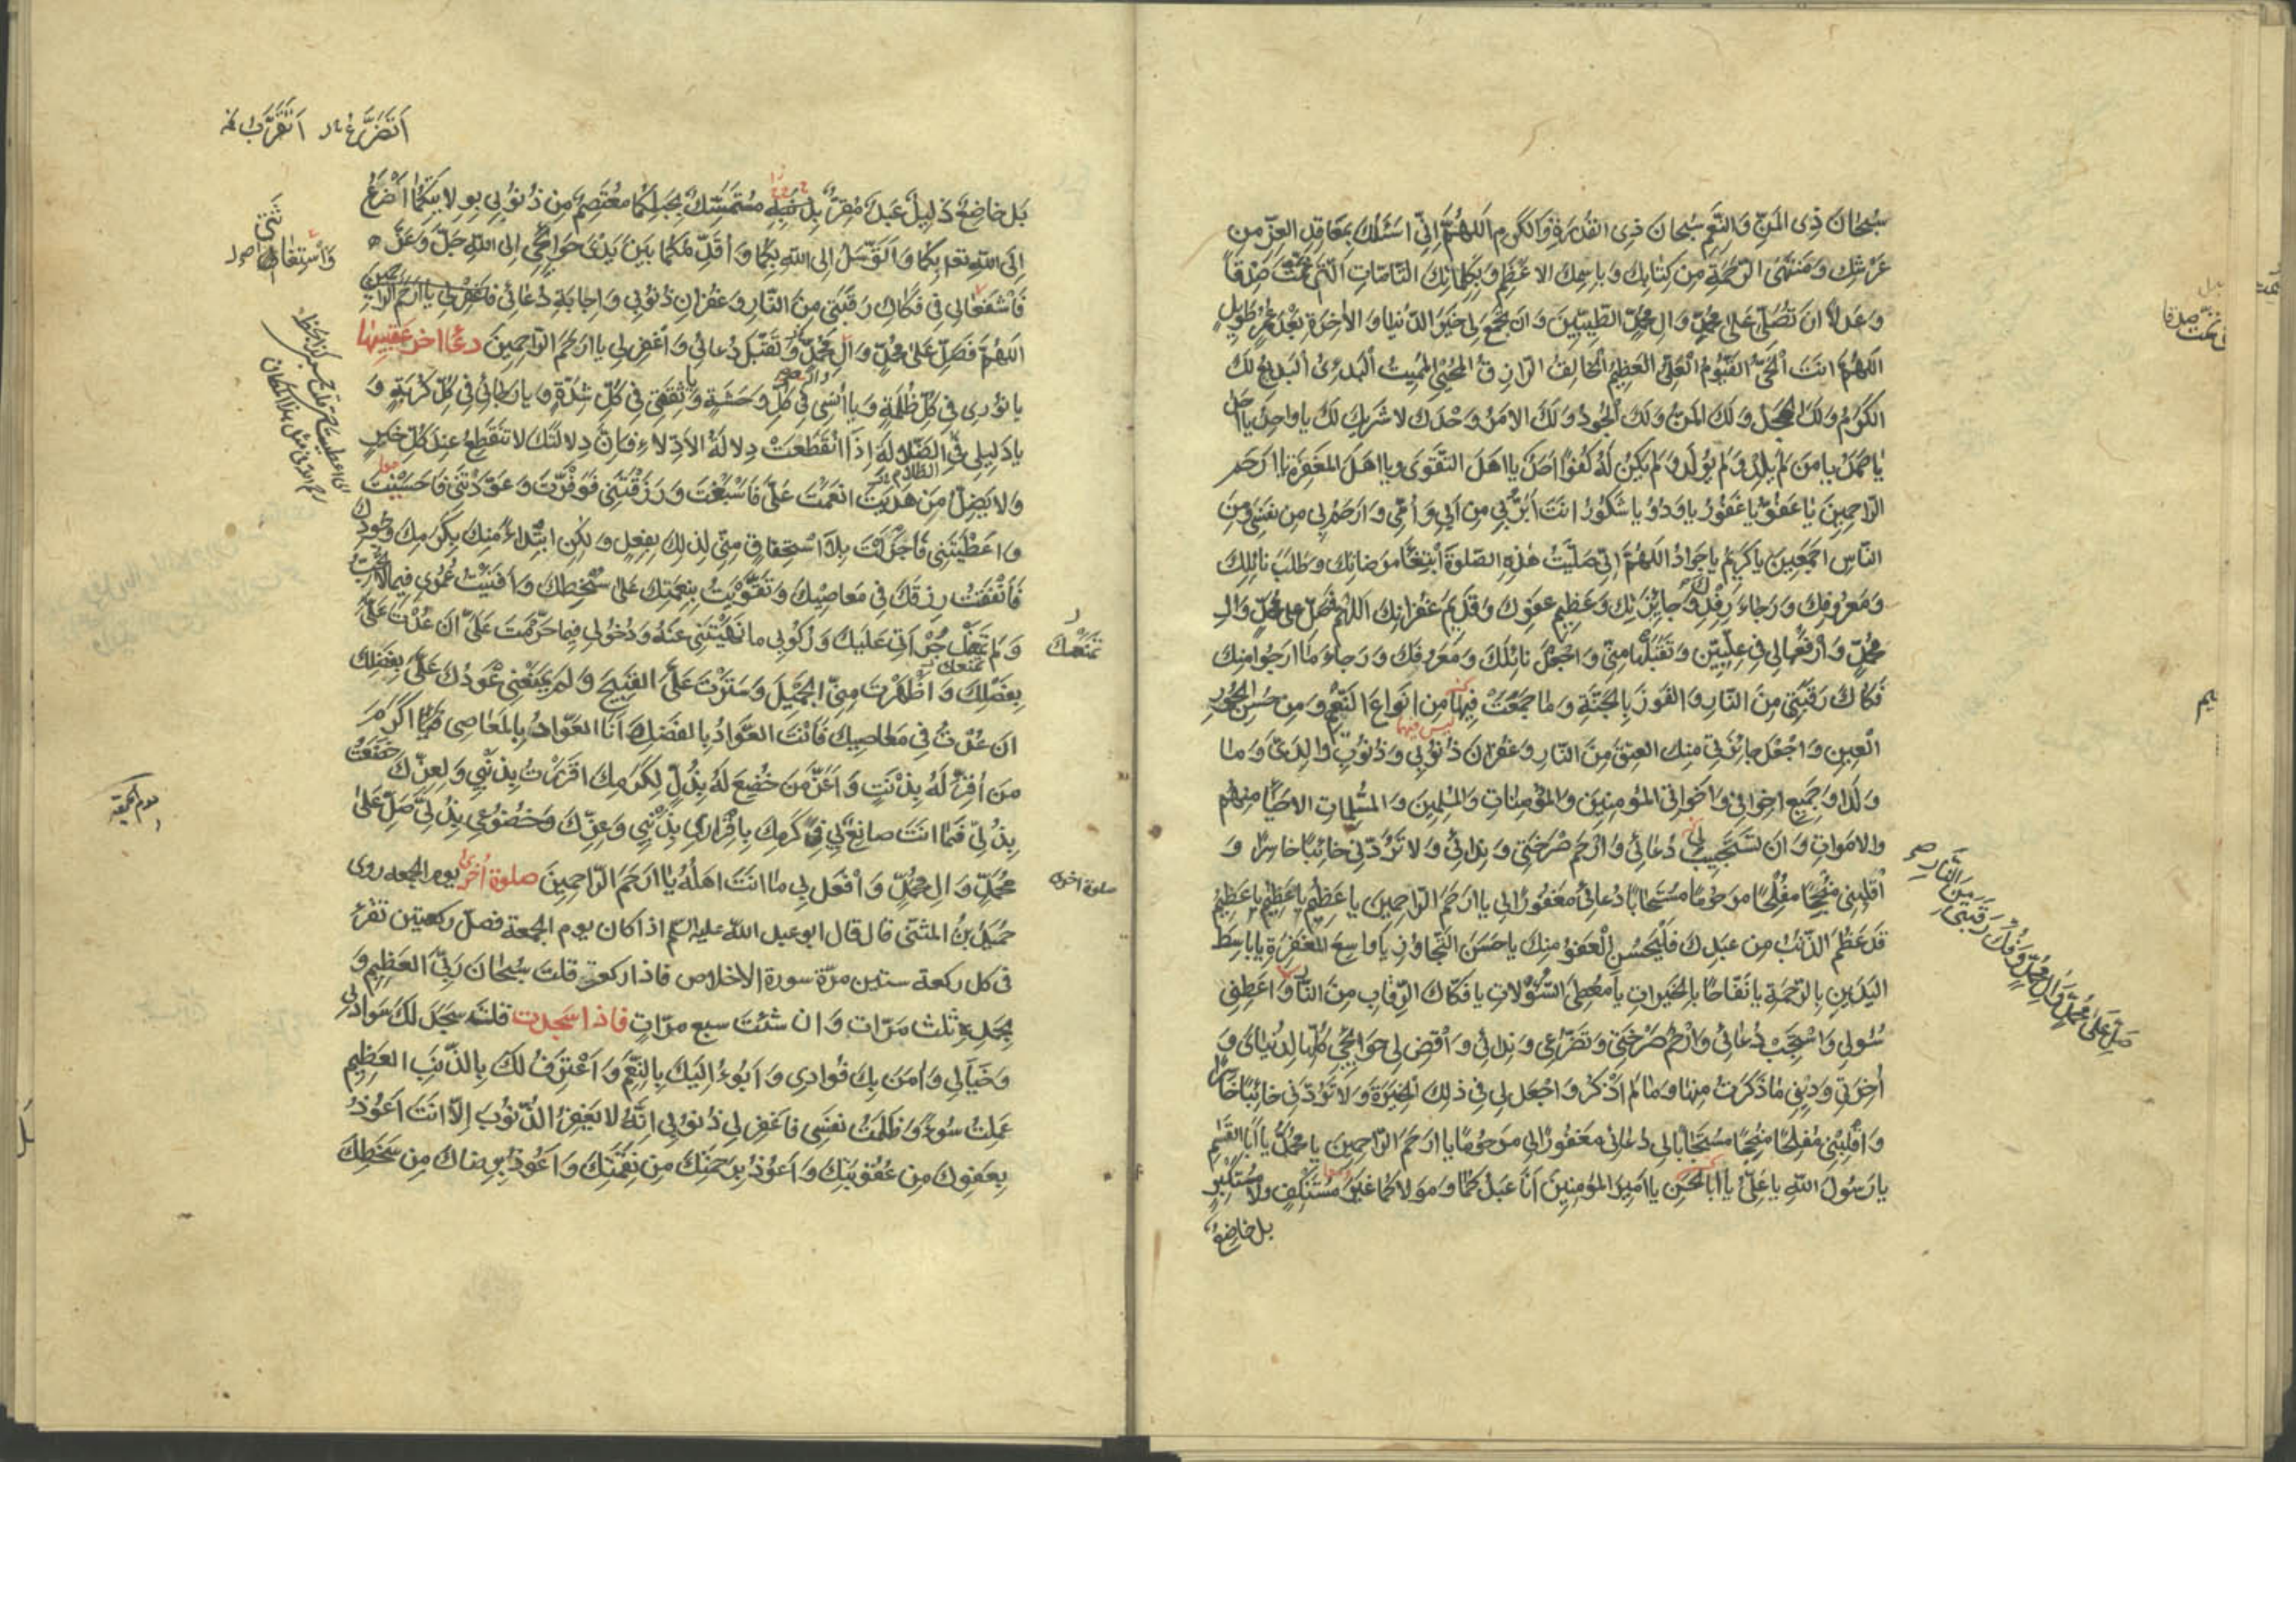 سُبْحانَ ذِی المَنِّ وَالنِّعَمِ سُبْحانَ ذِی القُدْرَةِ وَالكَرَمِ اَللّهُمَّ اِنّی اَسْئَلُكَ بِمَعاقِدِ العِزِّ مِن
عَرْشِك وَمُنْتَهَی الرَّحْمَةِ مِن كِتابِك وَبِاسْمِكَ الاَعْظَمِ وَبِكَلِماتِكَ التّامّاتِ الَّتی تَمَّتْ صِدْقًا
وَعَدْلاً اَنْ تُصَلِّیَ عَلی مُحَمَّدٍ وَالِ مُحَمَّدٍ الطَّیِّبینَ وَاَنْ تَجْمَعَ لی خَیْرَ الدُّنْیا وَالاخِرَةِ بَعْدَ عُمْرٍ طَویلٍ
اَللّهُمَّ اَنْتَ الْحَیُّ القَیُّومُ الْعَلِیُّ العَظیمُ الْخالِقُ الرّازِقُ الْمُحْیی الْمُمیتُ الْبَدیءُ الْبَدیعُ لَكَ
الكَرَمُ وَلَكَ الْمَجْدُ وَلَكَ المَنُّ وَلَكَ الْجُودُ وَلَكَ الاَمْرُ وَحْدَكَ لا شَریكَ لَكَ یا واحِدُ یا اَحَدُ
یا صَمَدُ یا مَن لَمْ یَلِدْ وَلَمْ یُولَدْ وَلَمْ یَكُنْ لَهُ كُفُوًا اَحَدٌ یا اَهْلَ التَّقْوی وَیا اَهْلَ المَغْفِرَةِ یا اَرْحَمَ
الرّاحِمینَ یا عَفُوُّ یا غَفُورُ یا وَدُودُ یا شَكُورُ اَنْتَ اَبَرُّ بی مِن اَبی وَاُمّی وَاَرْحَمُ بی مِن نَفْسی وَمِنَ
النّاسِ اَجْمَعینَ یا كَریمُ یا جَوادُ اَللّهُمَّ اِنّی صَلَّیْتُ هذِهِ الصَّلوةَ ابْتِغاءَ مَرْضاتِكَ وَطَلَبَ نائِلِكَ
وَمَعْرُوفِكَ وَرَجاءَ رِفْدِكَ وَجائِزَتِكَ وَعَظیمِ عَفْوِكَ وَقَدیمِ غُفْرانِكَ اَللّهُمَّ فَصَلِّ عَلی مُحَمَّدٍ وَالِ
مُحَمَّدٍ وَارْفَعْها لی فی عِلِّیّینَ وَتَقَبَّلْها مِنّی وَاجْعَلْ نائِلَكَ وَمَعْرُوفَكَ وَرَجاءَ ما اَرْجُو مِنْكَ
فَكاكَ رَقَبَتی مِنَ النّارِ وَالفَوْزَ بِالْجَنَّةِ وَما جَمَعْتَ فیها مِن اَنْواعِ النَّعیمِ وَمِن حُسْنِ الْحُورِ
الْعینِ وَاجْعَلْ جائِزَتی مِنْكَ العِتْقَ مِنَ النّارِ وَغُفْرانَ ذُنُوبی وَذُنُوبِ والِدَیَّ وَما
وَلَدا وَجَمیعِ اِخْوانی وَاَخَواتی المُؤمِنینَ وَالمُؤْمِناتِ وَالمُسْلِمینَ وَالمُسْلِماتِ الاَحْیاءِ مِنْهُم
وَالاَمْواتِ وَاَنْ تَسْتَجیبَ لی دُعائی وَارْحَمْ صَرْخَتی وَنِدائی وَلا تَرُدَّنی خائِبًا خاسِرًا وَ
اَقْلِبْنی مُنْجِحًا مُفْلِحًا مَرْحُومًا مُسْتَجابًا دُعائی مَغْفُورًا لی یا اَرْحَمَ الرّاحِمینَ یا عَظیمُ یا عَظیمُ یا عَظیمُ
قَدْ عَظُمَ الذَّنْبُ مِن عَبْدِكَ فَلْیَحْسُنِ الْعَفْوُ مِنْكَ یا حَسَنَ التَّجاوُزِ یا واسِعَ المَغْفِرَةِ یا باسِطَ
الیَدَیْنِ بِالرَّحْمَةِ یا نَفّاحًا بِالْخَیْراتِ یا مُعْطِیَ السُّؤْلاتِ یا فَكّاكَ الرِّقابِ مِنَ النّارِ وَاَعْطِنی
سُؤْلی وَاسْتَجِبْ دُعائی وَارْحَمْ صَرْخَتی وَتَضَرُّعی وَنِدائی وَاقْضِ لی حَوائِجی كُلَّها لِدُنْیایَ وَ
اخِرَتی وَدینی ما ذَكَرْتُ مِنْها وَما لَمْ اَذْكُرْ وَاجْعَلْ لی فی ذلِكَ الْخِیَرَةَ وَلا تَرُدَّنی خائِبًا خاسِرًا
وَاَقْلِبْنی مُفْلِحًا مُنْجِحًا مُسْتَجابًا لی دُعائی مَغْفُورًا لی مَرْحُومًا یا اَرْحَمَ الرّاحِمینَ یا مُحَمَّدُ یا اَبَا القاسِمِ
یا رَسُولَ اللّهِ یا عَلِیُّ یا اَبَا الْحَسَنِ یا اَمیرَ المُؤْمِنینَ اَنَا عَبْدُكُما وَمَوْلاكُما غَیْرُ مُسْتَنْكِفٍ وَلا مُسْتَكْبِرٍ
بل خاضِعٌ
صَلِّ عَلی مُحَمَّدٍ وَالِ مُحَمَّدٍ وَفُكَّ رَقَبَتی مِنَ النّارِ
اَتَضَرَّعُ اَتَقَرَّبُ
بَل خاضِعٌ ذَلیلٌ عَبْدٌ مُقِرٌّ مُتَمَسِّكٌ بِحَبْلِكُما مُعْتَصِمٌ مِن ذُنُوبی بِوِلایَتِكُما اَضْرَعُ
اِلَی اللّهِ بِكُما وَاَتَوَسَّلُ اِلَی اللّهِ بِكُما وَاُقَدِّمُكُما بَیْنَ یَدَیْ حَوائِجی اِلَی اللّهِ جَلَّ وَعَزَّ
فَاشْفَعا لی فی فَكاكِ رَقَبَتی مِنَ النّارِ وَغُفْرانِ ذُنُوبی وَاِجابَةِ دُعائی فاغفرلی یا اَرْحَمَ الرّاحِمینَ
اَللّهُمَّ فَصَلِّ عَلی مُحَمَّدٍ وَالِ مُحَمَّدٍ وَتَقَبَّلْ دُعائی وَاغْفِرْ لی یا اَرْحَمَ الرّاحِمینَ دعاء اخر عقیبها
یا نُوری فی كُلِّ ظُلْمَةٍ وَیا اُنْسی فی كُلِّ وَحْشَةٍ وَیا ثِقَتی فی كُلِّ شِدَّةٍ وَیا رَجائی فی كُلِّ كُرْبَةٍ وَ
یا دَلیلی فِی الضَّلالَةِ اِذَا انْقَطَعَتْ دِلالَةُ الاَدِلاّءِ فَاِنَّ دِلالَتَكَ لا تَنْقَطِعُ عِنْدَ كُلِّ خَیْرٍ
وَلا یَضِلُّ مَن هَدَیْتَ اَنْعَمْتَ عَلَیَّ فَاَسْبَغْتَ وَرَزَقْتَنی فَوَفَّرْتَ وَعَوَّدْتَنی فَاَحْسَنْتَ
وَاَعْطَیْتَنی فَاَجْزَلْتَ بِلا اسْتِحْقاقٍ مِنّی لِذلِكَ بِفِعْلٍ وَلكِنِ ابْتِداءً مِنْكَ بِكَرَمِكَ وَجُودِكَ
فَاَنْفَقْتُ رِزْقَكَ فی مَعاصیكَ وَتَقَوَّیْتُ بِنِعْمَتِكَ عَلی سَخَطِكَ وَاَفْنَیْتُ عُمْری فیما لا تُحِبُّ
وَلَمْ تَمْنَعْكَ جُرْاَتی عَلَیْكَ وَرُكُوبی ما نَهَیْتَنی عَنْهُ وَدُخُولی فیما حَرَّمْتَ عَلَیَّ اَنْ عُدْتَ عَلَیَّ
بِفَضْلِكَ وَاَظْهَرْتَ مِنِّی الْجَمیلَ وَسَتَرْتَ عَلَیَّ القَبیحَ وَلَمْ یَمْنَعْنی عَوْدُكَ عَلَیَّ بِفَضْلِكَ
اَنْ عُدْتُ فی مَعاصیكَ فَاَنْتَ العَوّادُ بِالفَضْلِ وَاَنَا العَوّادُ بِالمَعاصی فَیا اَكْرَمَ
مَن اُقِرَّ لَهُ بِذَنْبٍ وَاَعَزَّ مَن خُضِعَ لَهُ بِذُلٍّ لِكَرَمِكَ اَقْرَرْتُ بِذَنْبی وَلِعِزِّكَ خَضَعْتُ
بِذُلّی فَما اَنْتَ صانِعٌ بی فی كَرَمِكَ بِاِقْراری بِذَنْبی وَعِزِّكَ وَخُضُوعی بِذُلّی صَلِّ عَلی
مُحَمَّدٍ وَالِ مُحَمَّدٍ وَافْعَلْ بی ما اَنْتَ اَهْلُهُ یا اَرْحَمَ الرّاحِمینَ صلوة اُخری یوم الجمعه روی
حُمَیْدُ بنُ المثنّی قال قال ابو عبد اللّه علیه السّلم اذا كان یوم الجمعة فصلّ ركعتین تقرء
فی كل ركعة ستین مرّة سورة الاخلاص فاذا ركعت قلت سُبْحانَ رَبِّیَ العَظیمِ وَ
بِحَمْدِهِ ثلث مرّات وان شئت سبع مرّات فاذا سجدت قلت سَجَدَ لَكَ سَوادی
وَخَیالی وَامَنَ بِكَ فُؤادی وَاَبُوءُ اِلَیْكَ بِالنِّعَمِ وَاَعْتَرِفُ لَكَ بِالذَّنْبِ العَظیمِ
عَمِلْتُ سُوءًا وَظَلَمْتُ نَفْسی فَاغْفِرْ لی ذُنُوبی اِنَّهُ لا یَغْفِرُ الذُّنُوبَ اِلاّ اَنْتَ اَعُوذُ
بِعَفْوِكَ مِن عُقُوبَتِكَ وَاَعُوذُ بِرَحْمَتِكَ مِن نِقْمَتِكَ وَاَعُوذُ بِرِضاكَ مِن سَخَطِكَ
تَمْنَعْكَ
صلوة اخری